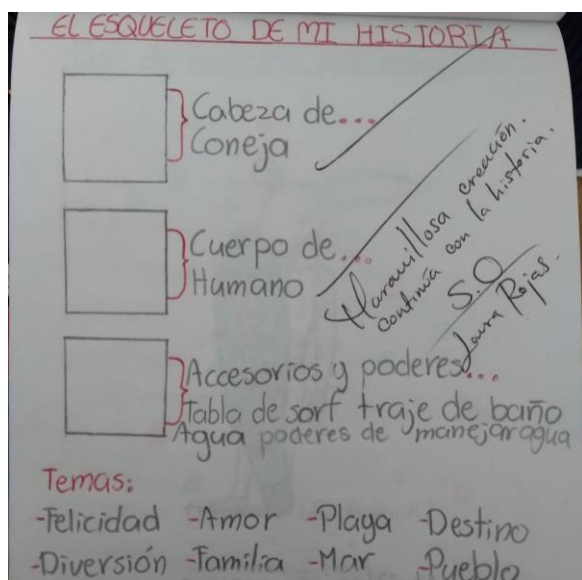 EL ESQUELETO DE MI HISTORIA
Cabeza de...
Coneja
Cuerpo de...
Humano
Maravillosa creación.
continúa con la historia.
5.0
Laura Rojas.
Accesorios y poderes...
Tabla de sorf traje de baño
Agua poderes de manejar agua
Temas:
-Felicidad -Amor -Playa -Destino
-Diversión -Familia -Mar -Pueblo